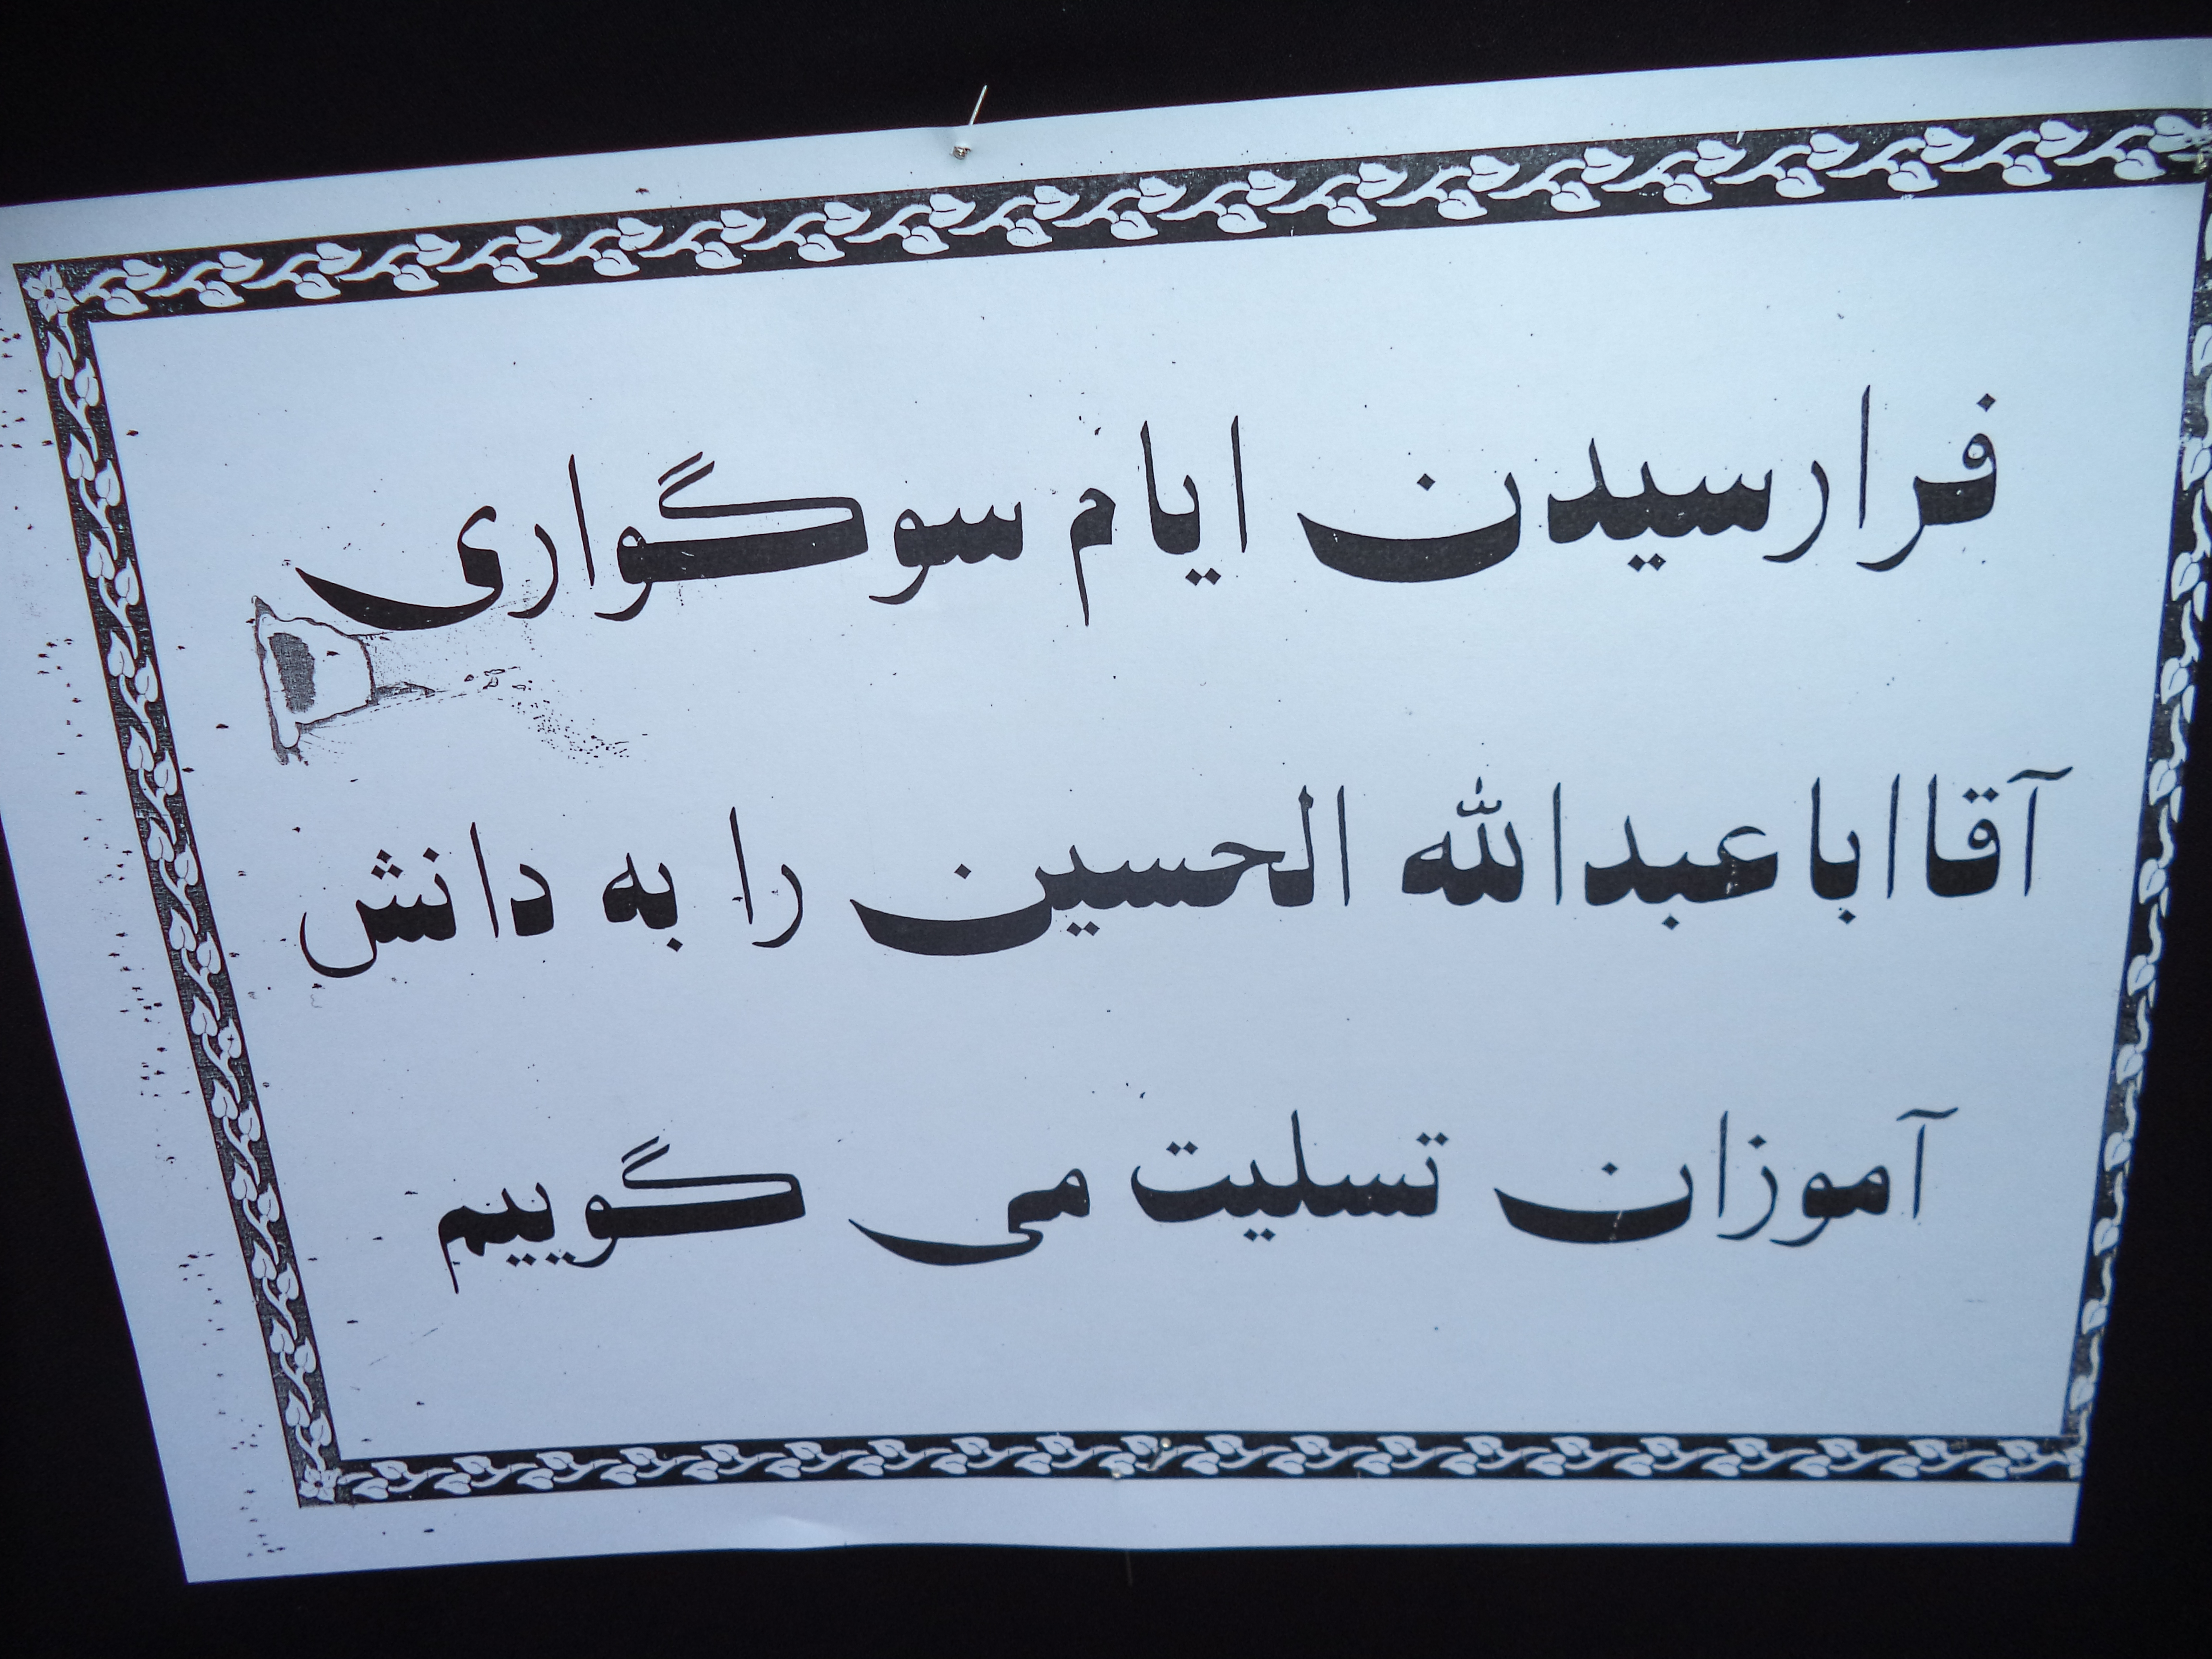 فرارسیدن ایام سوگواری
آقااباعبدالله الحسین را به دانش
آموزان تسلیت می گوییم